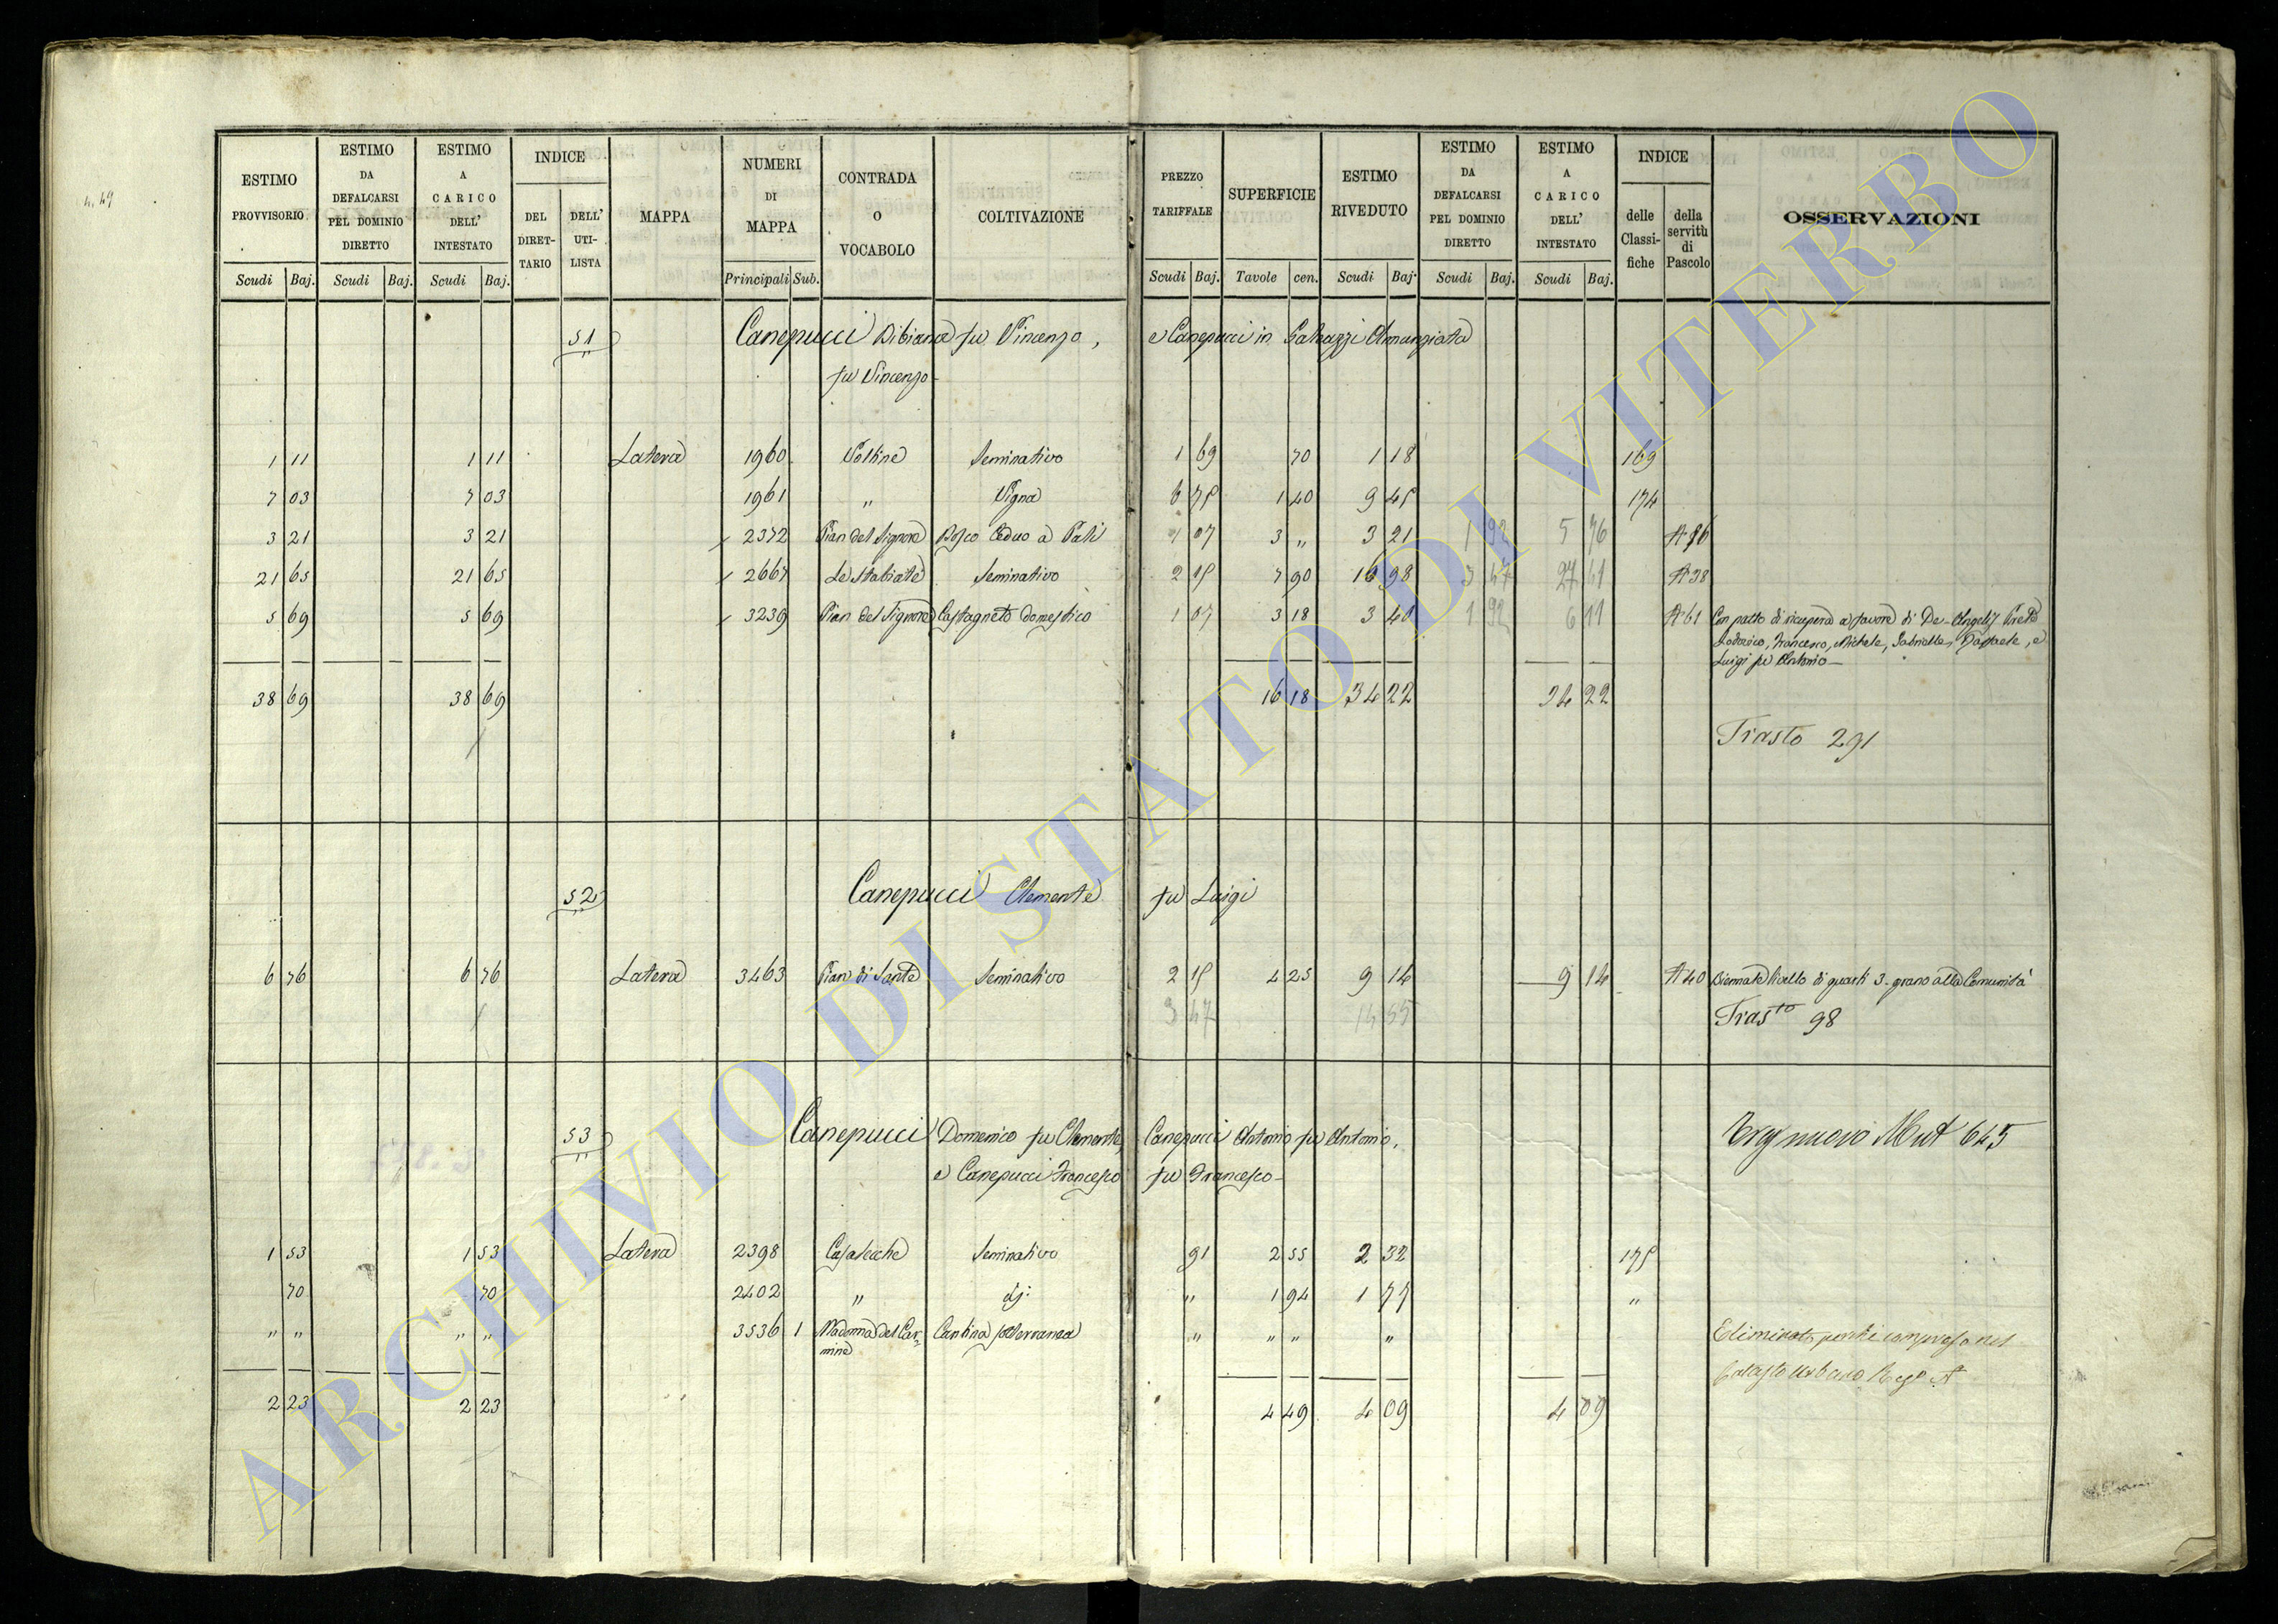 ESTIMO PROVVISORIO Scudi Baj.
ESTIMO DA DEFALCARSI PEL DOMINIO DIRETTO Scudi Baj.
ESTIMO A CARICO DELL' INTESTATO Scudi Baj.
INDICE DEL DIRET- TARIO DELL' UTI- LISTA
MAPPA
NUMERI DI MAPPA Principali Sub.
CONTRADA O VOCABOLO
COLTIVAZIONE
PREZZO TARIFFALE Scudi Baj.
SUPERFICIE Tavole cen.
ESTIMO RIVEDUTO Scudi Baj
ESTIMO DA DEFALCARSI PEL DOMINIO DIRETTO Scudi Baj.
ESTIMO A CARICO DELL' INTESTATO Scudi Baj.
INDICE delle Classi- fiche della servitù di Pascolo
OSSERVAZIONI
51 Canepucci Bibiana fu Vincenzo, e Canepucci in Galeazzi Annunziata
fu Vincenzo
1 11 1 11 Latera 1960 Poltine Seminativo 1 69 70 1 18 169
7 03 7 03 1961 " Vigna 6 75 1 40 9 45 174
3 21 3 21 2372 Pian del Signore Bosco Ceduo a Pali 1 07 3 " 3 21 1 92 5 76 A 86
21 65 21 65 2667 Le Stabiate Seminativo 2 15 7 90 16 98 3 47 27 41 A 38
5 69 5 69 3239 Pian del Signore Castagneto domestico 1 07 3 18 3 40 1 92 6 11 A 61 Con patto di ricupera a favore di De-Angelis Prete
Lodovico, Francesco, Michele, Gabrielle, Raffaele, e
Luigi fu Antonio
38 69 38 69 16 18 34 22 34 22
Trasto 291
52 Canepucci Clemente fu Luigi
6 76 6 76 Latera 3463 Pian di Sante Seminativo 2 15 4 25 9 14 9 14 A 40 Biennale livello di quarti 3. grano alla Comunità
3 47 14 55 Trasto 98
53 Canepucci Domenico fu Clemente, Canepucci Antonio fu Antonio, nuovo Mut 645
e Canepucci Francesco fu Francesco
1 53 1 53 Latera 2398 Casalecche Seminativo 91 2 55 2 32 175
70 70 2402 " id: " 1 94 1 77 "
" " " " 3536 1 Madonna del Car= mine Cantina sotterranea " " " " Eliminato perchè compreso nel
Catasto Urbano
2 23 2 23 4 49 4 09 4 09
ARCHIVIO DI STATO DI VITERBO